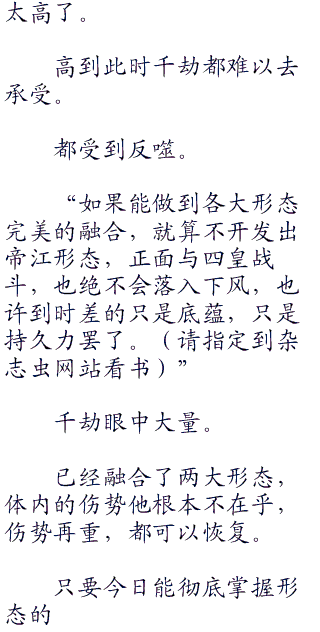 太高了。
高到此时千劫都难以去
承受。
都受到反噬。
“如果能做到各大形态
完美的融合，就算不开发出
帝江形态，正面与四皇战
斗，也绝不会落入下风，也
许到时差的只是底蕴，只是
持久力罢了。（请指定到杂
志虫网站看书）”
千劫眼中大量。
已经融合了两大形态，
体内的伤势他根本不在乎，
伤势再重，都可以恢复。
只要今日能彻底掌握形
态的